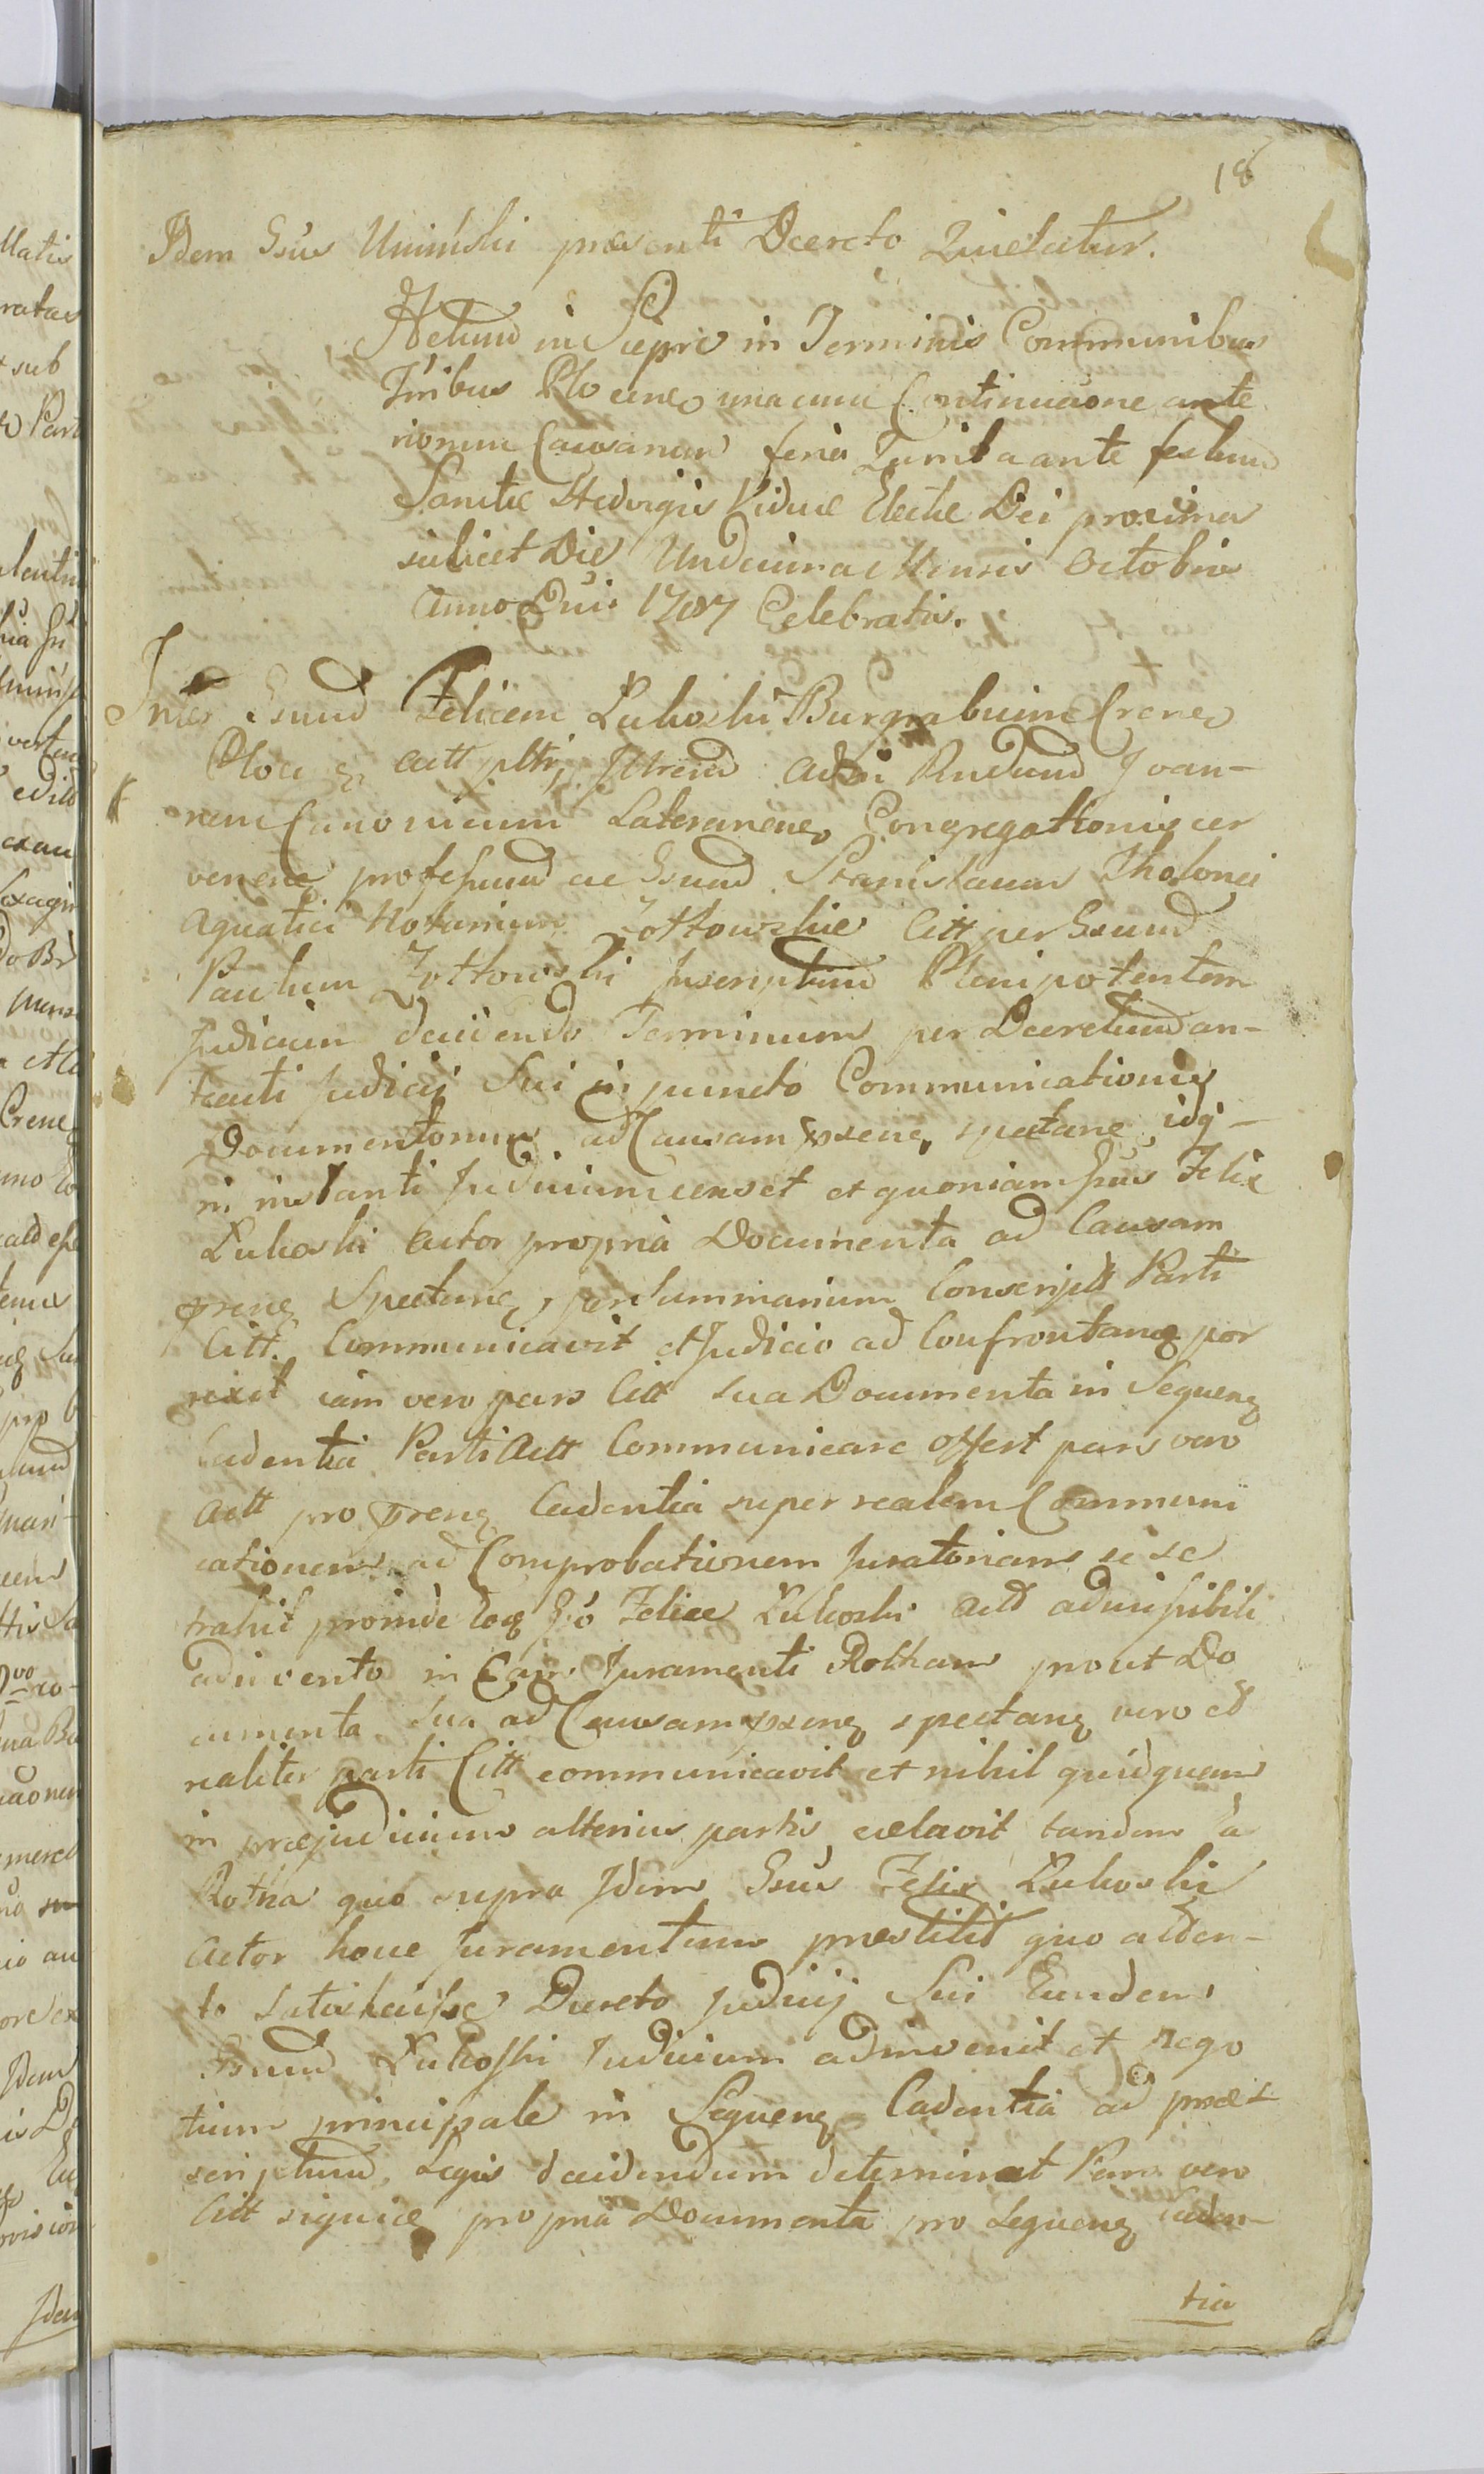 18
Idem Gsus Uminski præsenti Decreto Quietatur.
Actum in Sierpc in Terminis Communibus
Tribus Plocensq unacum Continuatione ante
riorum Causarum feria Quinta ante festum
Sanctæ Hedvigis Viduæ Electæ Dei proxima
scilicet Die Undecima Mensis Octobris
Anno Dni 1787 Celebratis.
Inter Gsum Felicem Lukoski Burgrabium Crensq
Ploc q Actt Iterum Adm Rndum Joan-
nem Canonicum Lateranensq Congregationis cer
venensq professum ac Gsum Stanislaum Tholonei
Aquatici Notarium Zottowskie Citt per Gsum
Paulum Zottowski Inscriptum Plenipotentem
Judicium decidendo Terminum per Decretum an-
teacti Judicij Sui in puncto Communicationis
Documentorum ad Causam psensq spectanq idq-
in instanti Judicium censet et quoniam Gsus Felix
Lukoski Actor propria Documenta ad Causam
prensq Spectanq, per Summarium Conscript Parti
Citt. Communicavit et Judicio ad Confrontanq por
rexit iam vero pars Citt sua Documenta in Sequenq
Cadentia Parti Actt Communicare offert pars vero
Actt pro prensq Cadentia super realem Communi
cationem ad Comprobationem Juratoriam se se
trahit proinde Felice Lukoski Actt admissibili
adinvento in Eam Juramenti Rotham prout Do
cumenta sua ad Causam psensq spectanq vero et
realiter parti Citt communicavit et nihil quidquam
in præjudicium alterius partis celavit tandem a
Rotha quo supra Idem Gsus Felix Lukoski
Actor hocce Juramentum præstitit quo atten-
to satisfecisse Decreto Judicij Sui Eundem
Gsum Lukoski Judicium adinvenit et nego
tium principale in Sequenq Cadentia ad præ-
scriptum Legis decidendum determinat Pars vero
Citt siquid propria Documenta pro Sequenq Caden-
tia